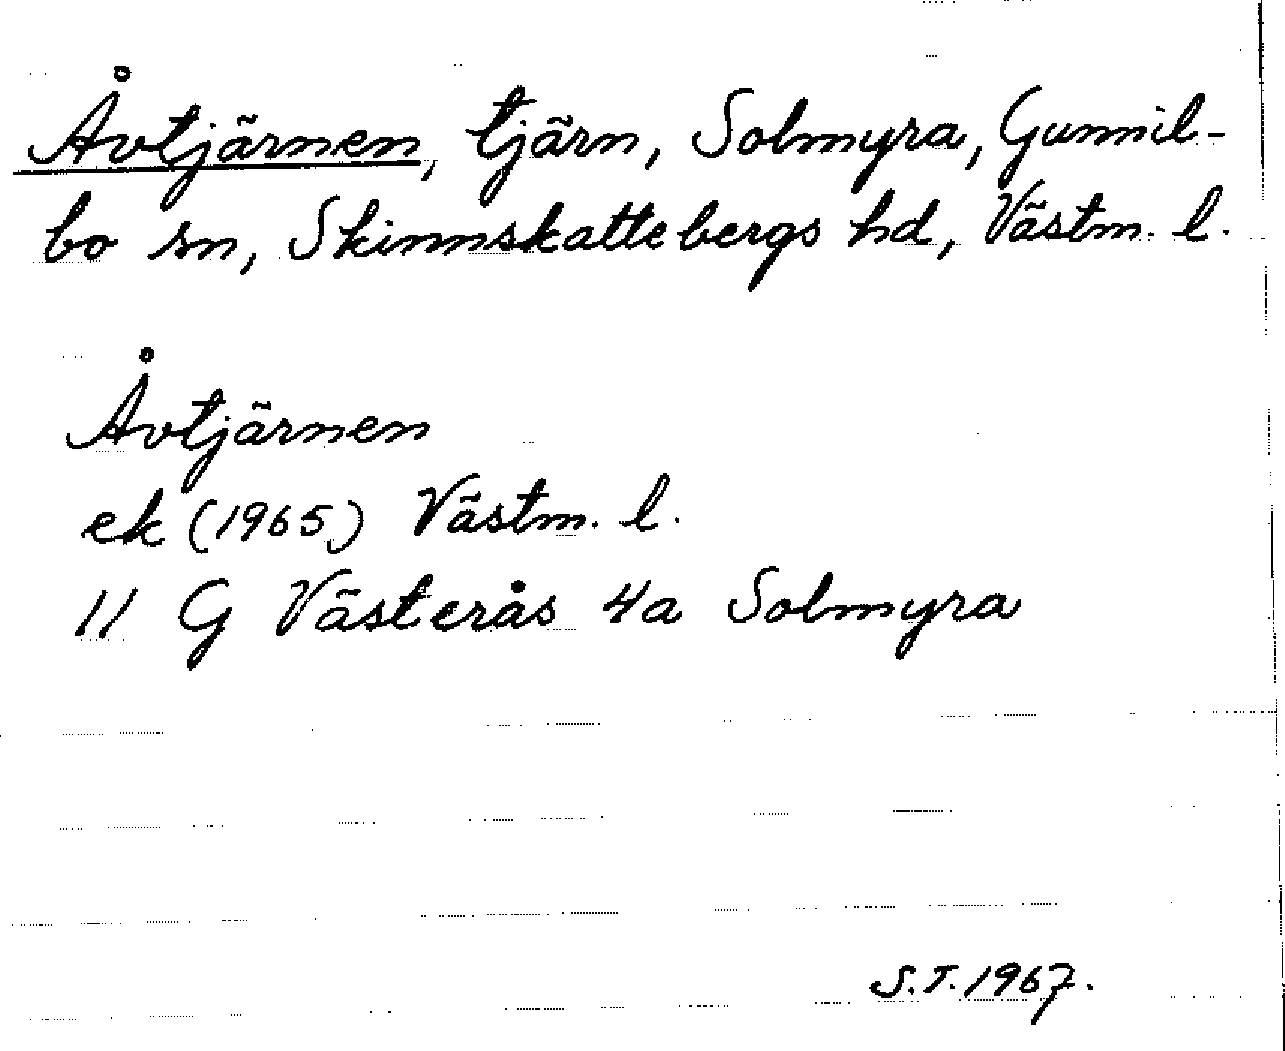 Åvtjärnen, tjärn, Solmyra, Gunnil-
bo sn, Skinnskattebergs hd, Västm. l.
Åvtjärnen
ek (1965) Västm. l.
11 G Västerås 4a Solmyra
S.T. 1967.